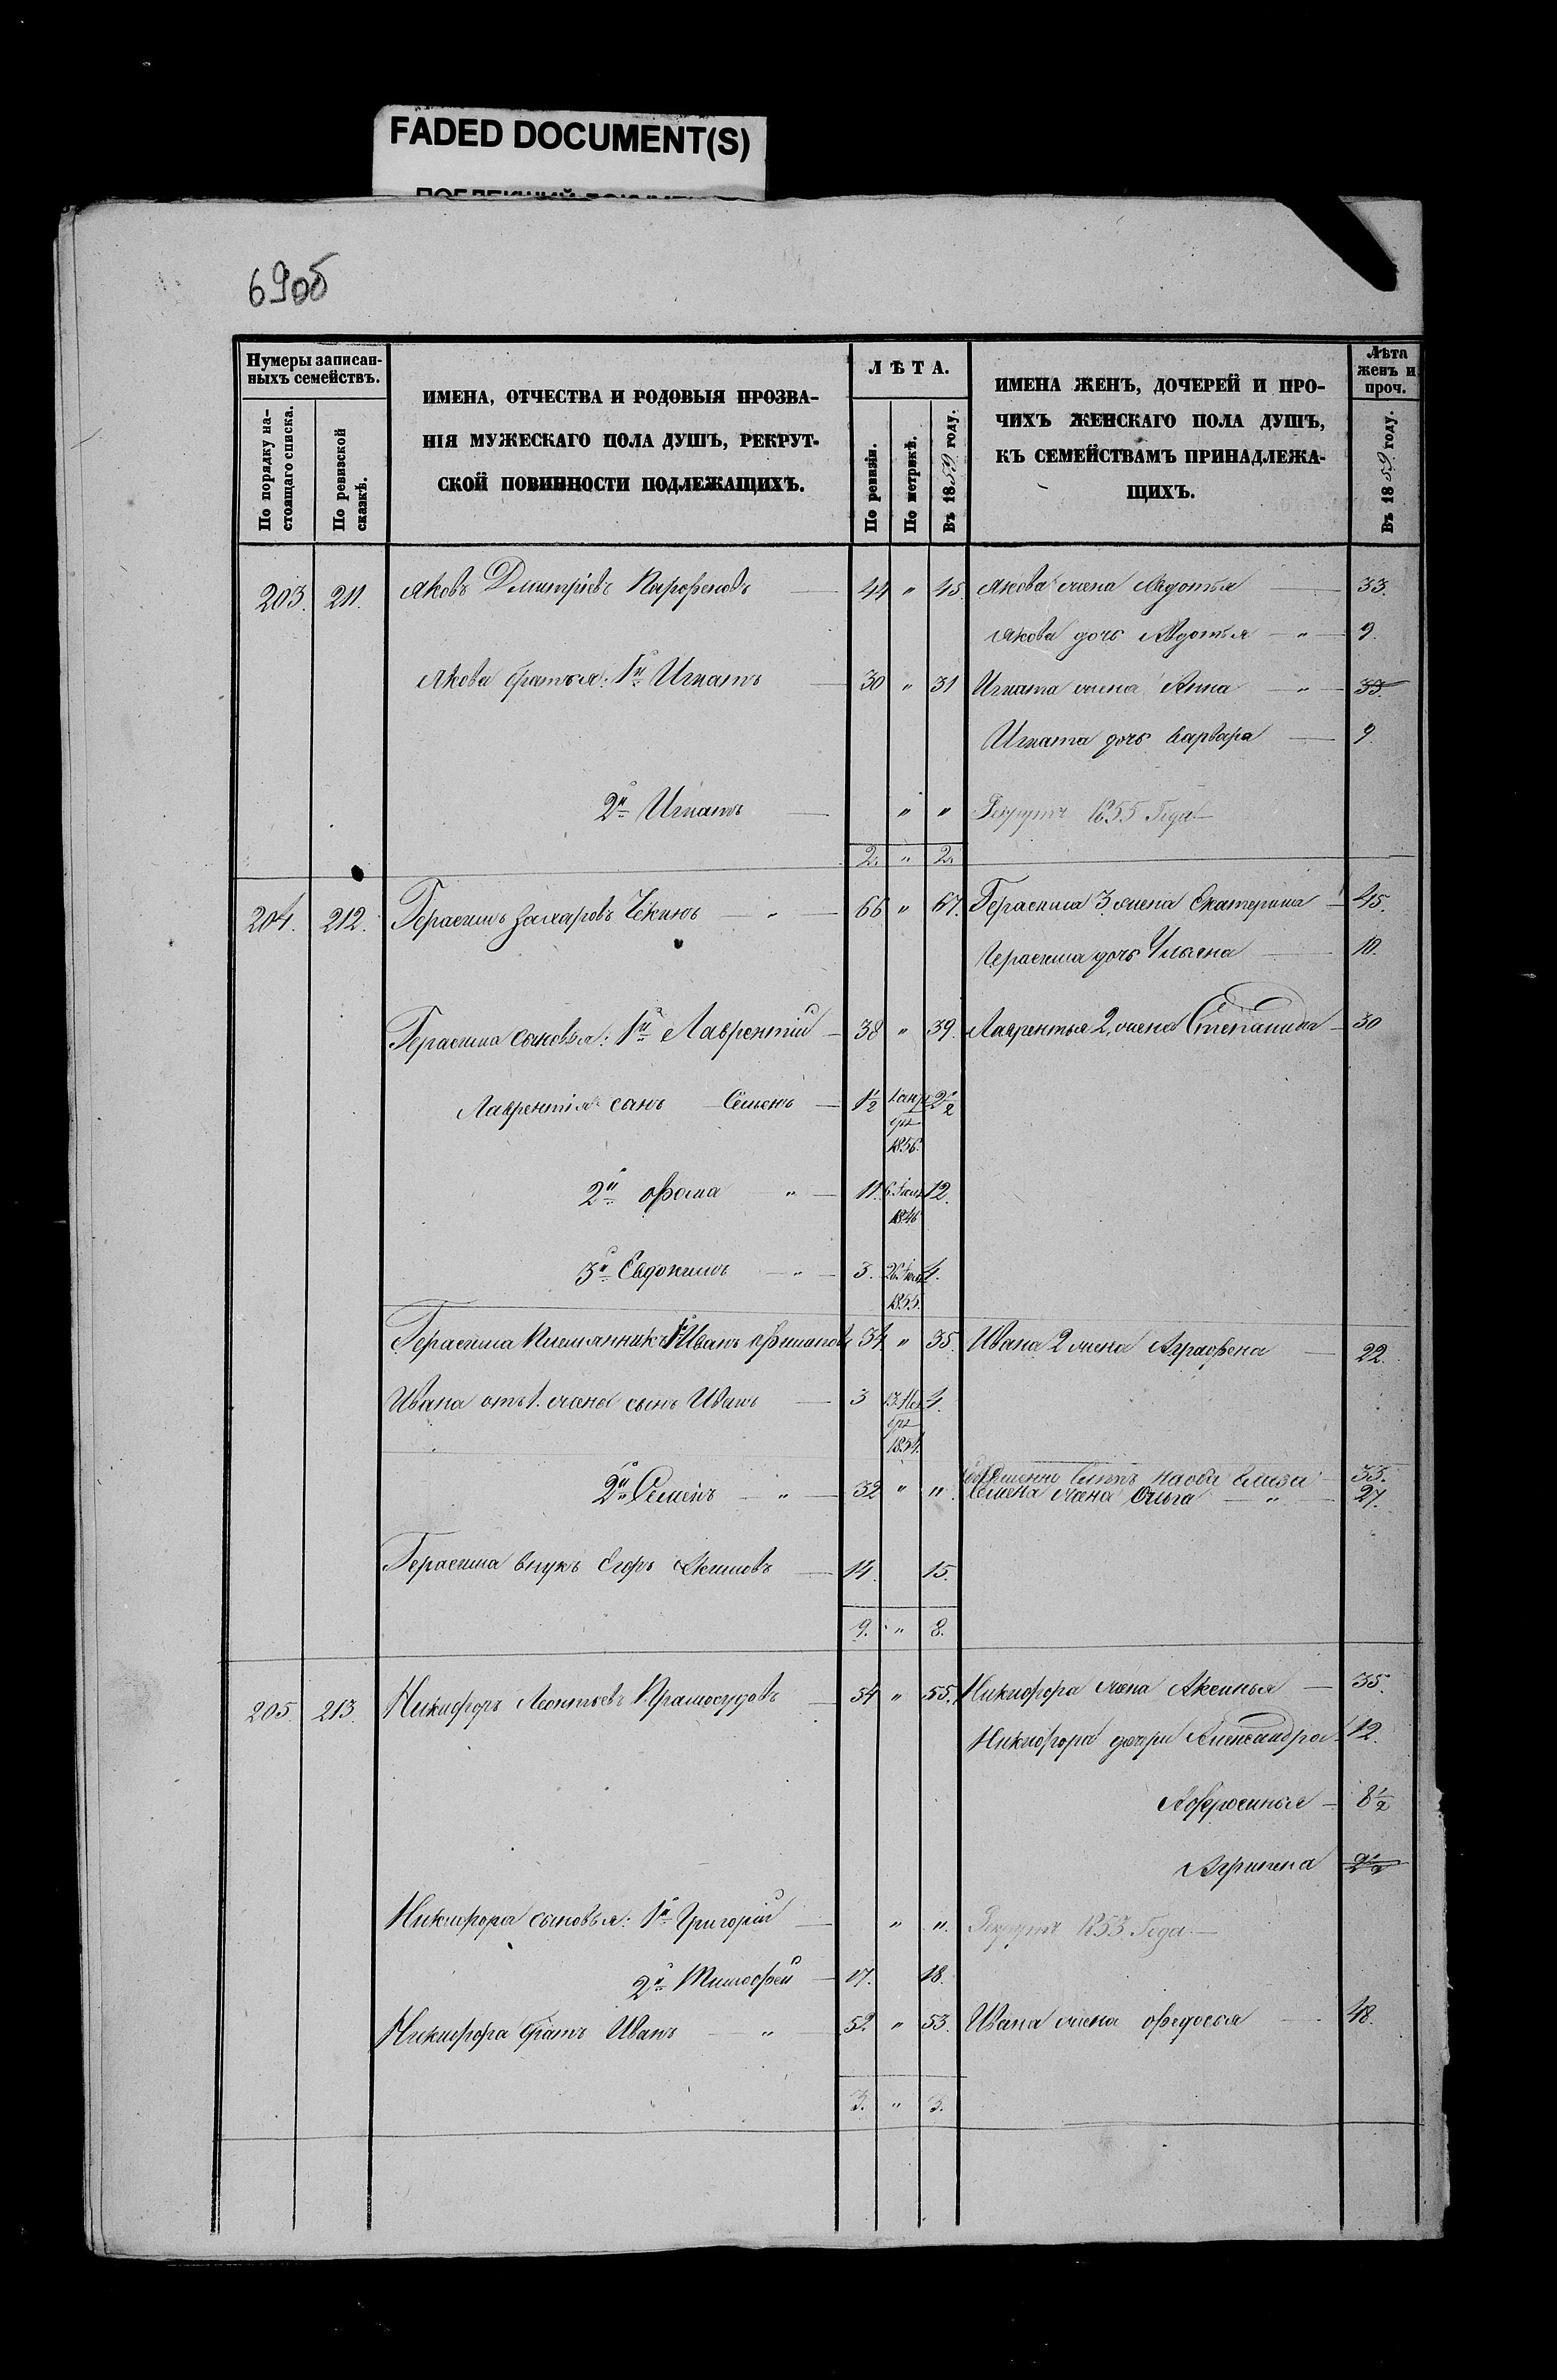 FADED DOCUMENT(S)
690б
Нумеры записан-
ныхъ семействъ.
По порядку на-
стоящаго списка.
По ревизской
сказкѣ.
ИМЕНА, ОТЧЕСТВА И РОДОВЫЯ ПРОЗВА-
НІЯ МУЖЕСКАГО ПОЛА ДУШЪ, РЕКРУТ-
СКОЙ ПОВИННОСТИ ПОДЛЕЖАЩИХЪ.
ЛѢТА.
По ревизіи.
По метрикѣ.
Въ 1859 году.
ИМЕНА ЖЕНЪ, ДОЧЕРЕЙ И ПРО-
ЧИХЪ ЖЕНСКАГО ПОЛА ДУШЪ,
КЪ СЕМЕЙСТВАМЪ ПРИНАДЛЕЖА-
ЩИХЪ.
Лѣта
женъ и
проч.
Въ 1859 году.
203. 211. Яковъ Дмитріевъ Парфеновъ — 44 " 45. Якова жена Авдотья — 33.
Якова дочь Авдотья — " — 9.
Якова братья: 1й Игнатъ — 30 " 31 Игната жена Анна — " — 33.
Игната дочь Варвара — 9
2й Игнатъ — " " Рекрутъ 1855 Года —
2. " 2.
204. 212. Герасимъ Захаровъ — " — 66 " 67. Герасима 3 жена Екатерина — 45.
Герасима дочь Ульяна — 10.
Герасима сыновья: 1й Лаврентій — 38 " 39. Лаврентья 2 жена Степанида — 30
Лаврентія сынъ Семенъ — 1½ 2½
1856.
2й Фома " — 11. 12.
1846
3й Евдокимъ — " — 3. 4.
1855.
Герасима Племянникъ 1й Иванъ 34 " 35. Ивана 2 жена Аграфена — 22.
Ивана отъ 1. жены сынъ Иванъ — 3 4.
1854.
33.
2й Семенъ — " — 32 " " Семена жена Ольга — " — 27.
Герасима внукъ Егоръ Акимовъ — 14. 15.
9. " 8.
205. 213. Никифоръ Леонтьевъ — 54 " 55. Никифора жена Аксинья — 35.
Никифора дочери Александра 12.
Афросинья — 8½
Агрипена 2½
Никифора сыновья: 1й Григорій — " ". Рекрутъ 1853 Года —
2й Тимофей — 17. 18.
Никифора братъ Иванъ — " — 52 " 53. Ивана жена Федосья — 48.
3. " 3.